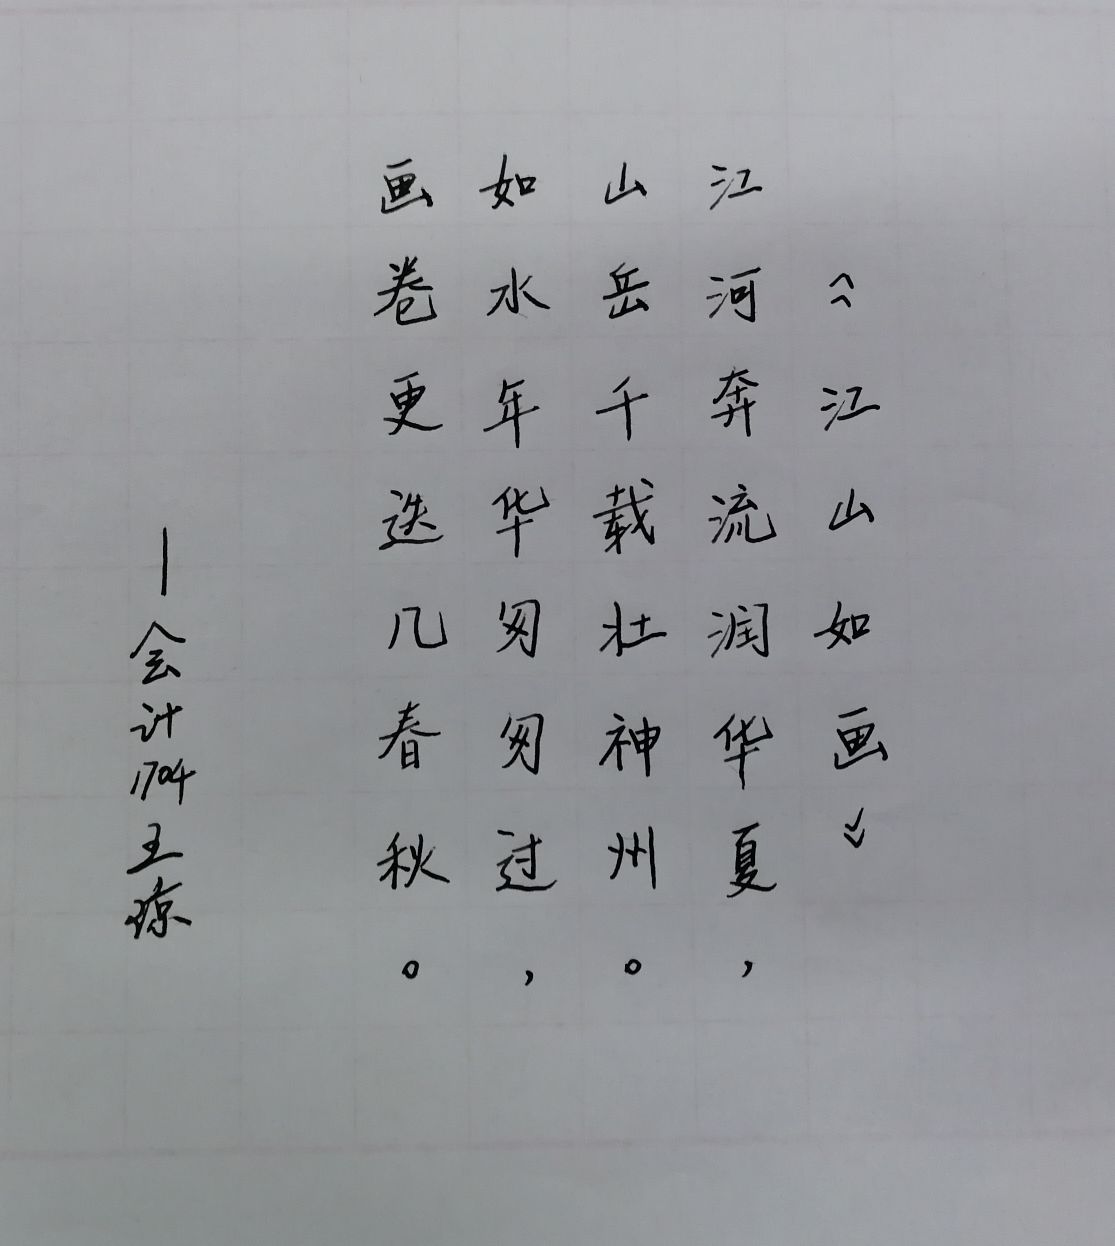 《江山如画》
江河奔流润华夏，
山岳千载壮神州。
如水年华匆匆过，
画卷更迭几春秋。
—会计1704王琼